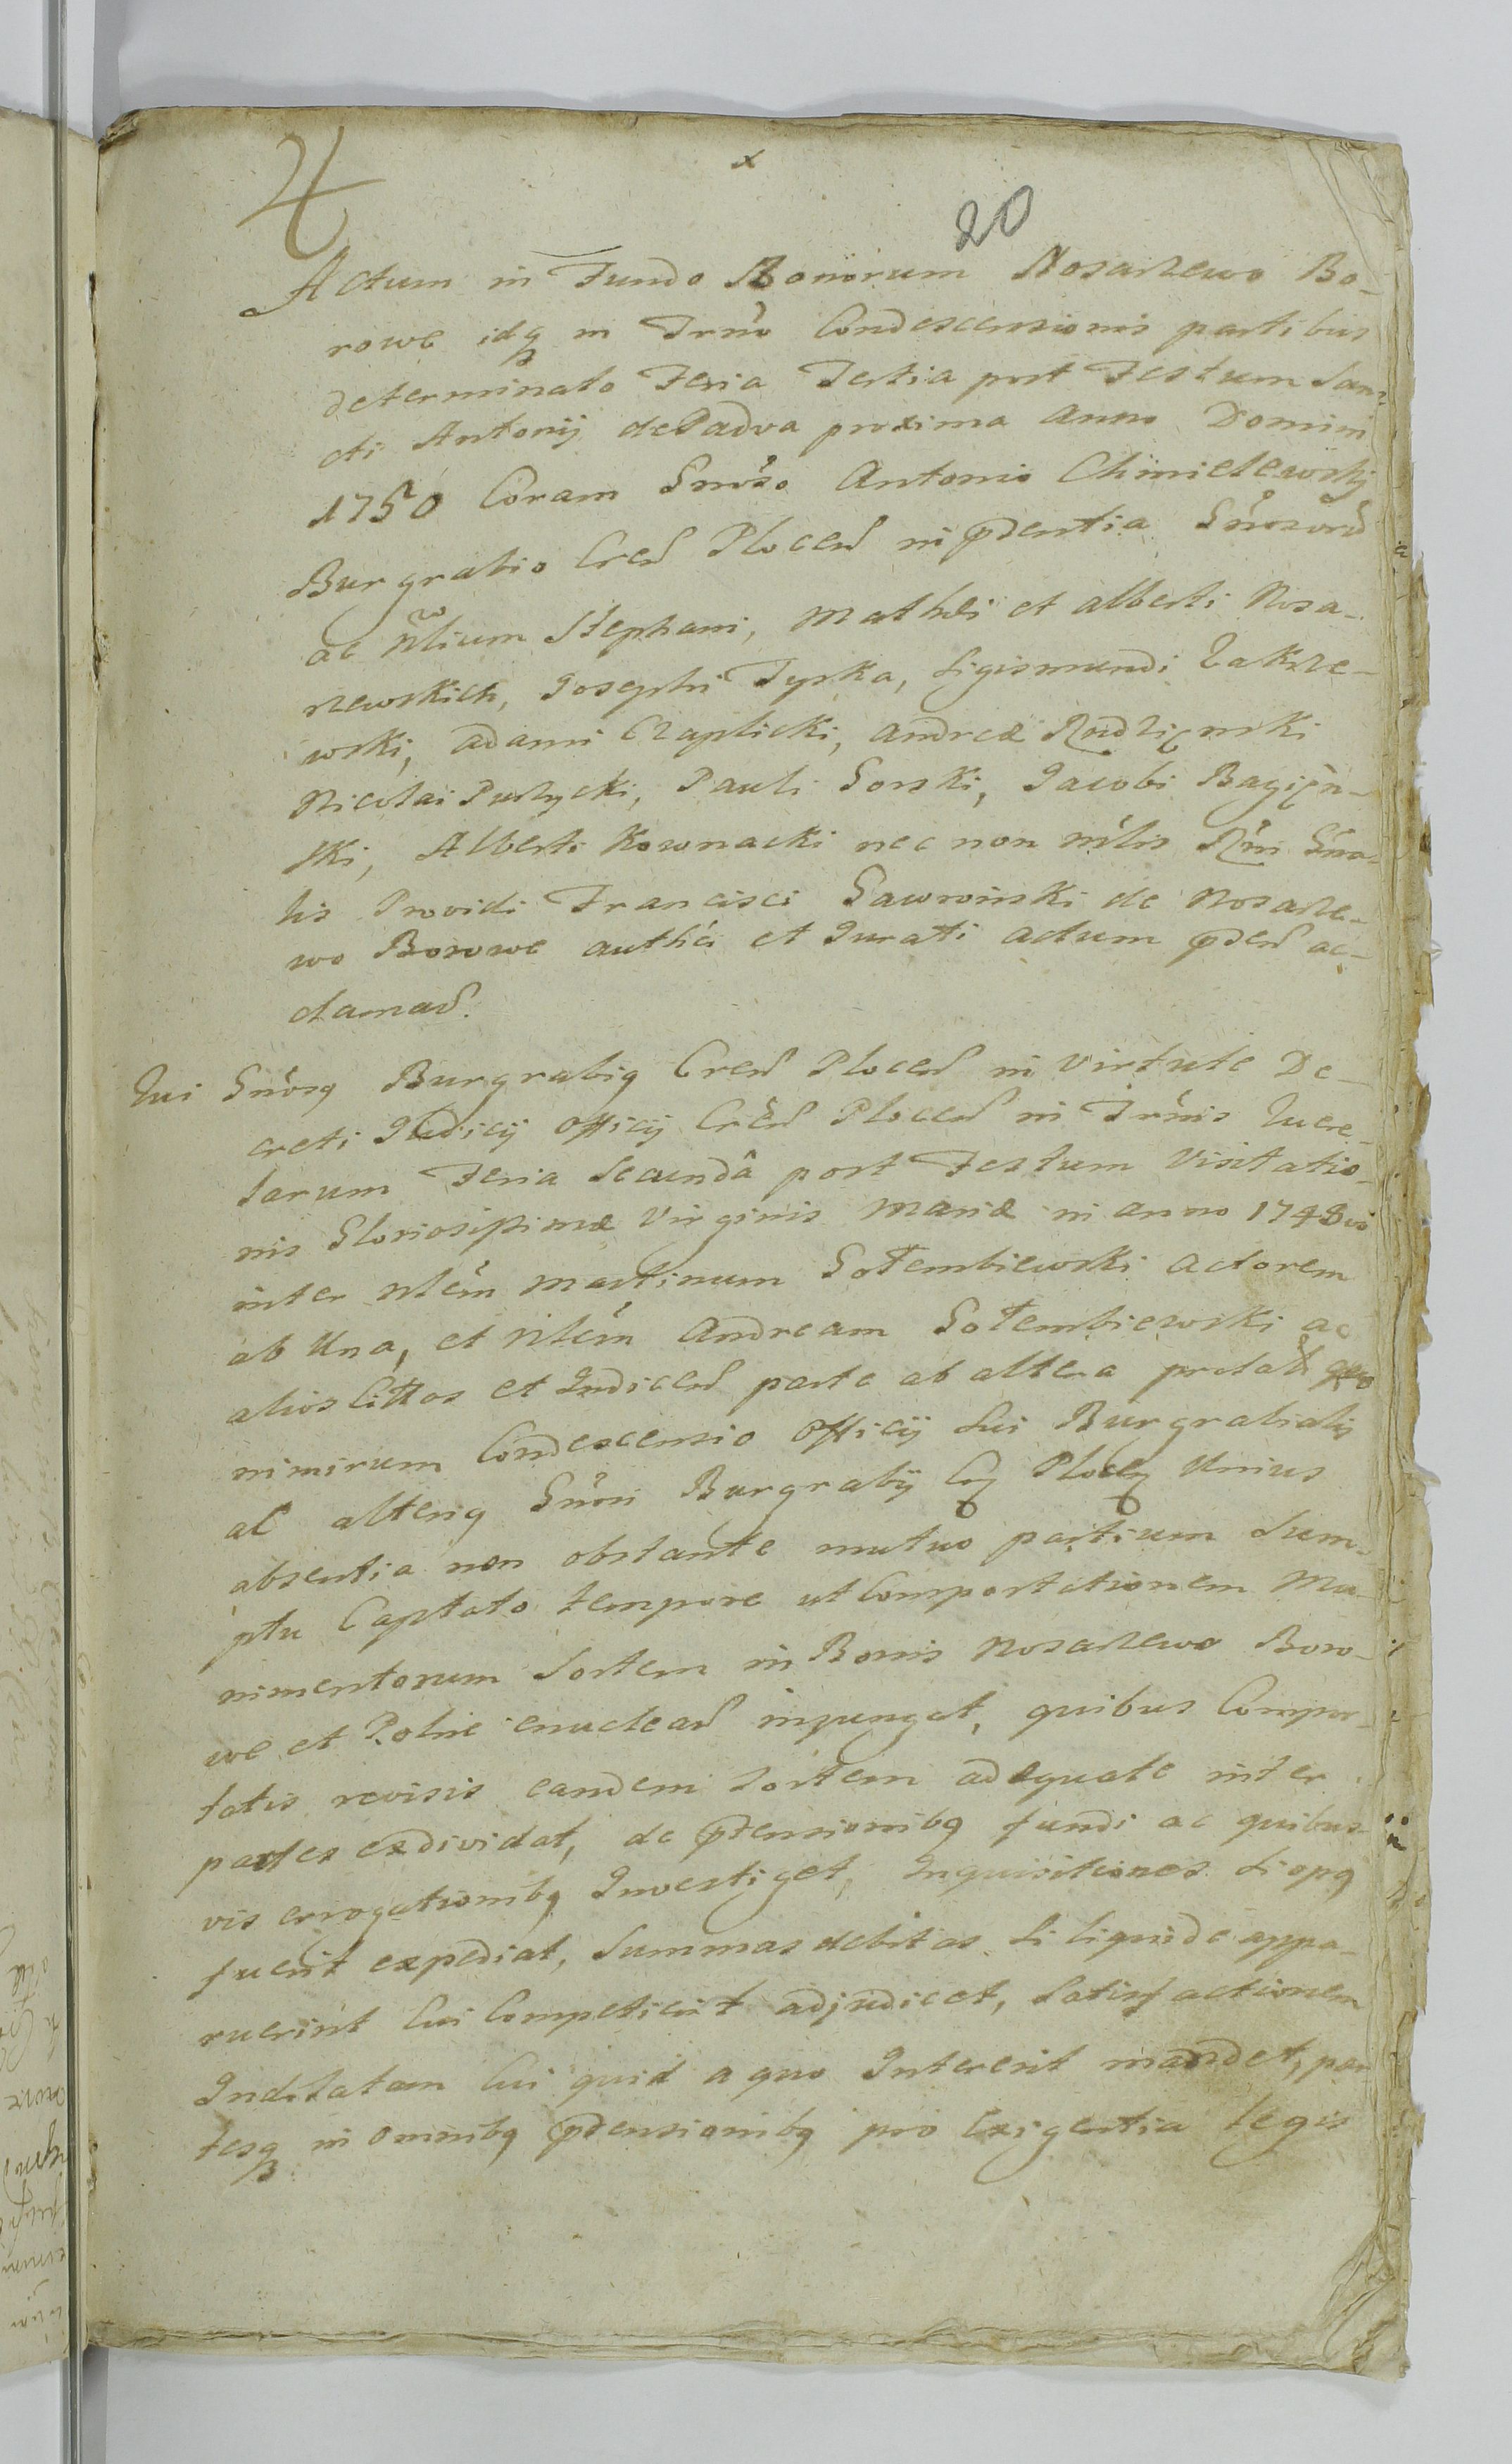 x
20
Actum in Fundo Bonorum Nosarzewo Bo-
rowe idq in Trno Condescensionis partibus
determinato Feria Tertia post Festum San-
cti Antonij de Padva proxima Anno Domini
1750 Coram Gnoso Antonio Chmielewski
Burgrabio Cren Plocen in pdentia Gnosorum
ac Nlium Stephani, Mathæi et Alberti Nosa-
rzewskich, Josephi Tyska, Sigismundi Zakrze-
wski, Adami Czaplicki, Andreæ
Nicolai Pustycki, Pauli Gorski, Jacobi Bagięn-
ski, Alberti Kownacki nec non mlis Rni Gna-
lis Providi Francisci Gawroinski de Nosarze-
wo Borowe authci et Jurati actum pden ac-
clamad.
Qui Gnosq Burgrabiq Cren Plocen in virtute De-
creti Judicij Officij Cren Plocen in Trnis Quere-
larum Feria Secundâ post Festum Visitatio-
nis Gloriosissimæ Virginis Mariæ in anno 1748vo
inter Nlem Martinum Gołembiewski Actorem
ab Una, et Nlem Andream Gołembiewski ac
alios Cittos et Indicen parte ab altera prolati quo
nimirum Condescensio Officij Sui Burgrabialis
al alteriq Gnosi Burgrabij Plocen Unius
absentia non obstante mutuo partium Sum-
ptu Captato tempore ut Comportationem Mu-
nimentorum Sortem in Bonis Nosarzewo Boro-
we et Polne enuclean injungat, quibus Compor-
tatis revisis eandem Sortem adæquate inter
partes exdividat, de ptensionibq fundi ac quibus-
vis errogationibq Investiget, Inquisitiones Si opq
fuerit expediat, Summas debitas Si liquide appa-
ruerint Cui Competierit adjudicet, Satisfactionem
Indilatam Cui quid a quo Intererit mandet, par-
tesq in omnibq ptensionibq pro Exigentia legis